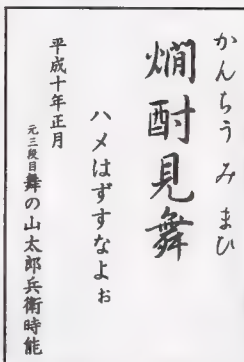 かんちうみまひ
燗酎見舞
ハメはずすなよぉ
平成十年正月
元三段目舞の山太郎兵衛時能